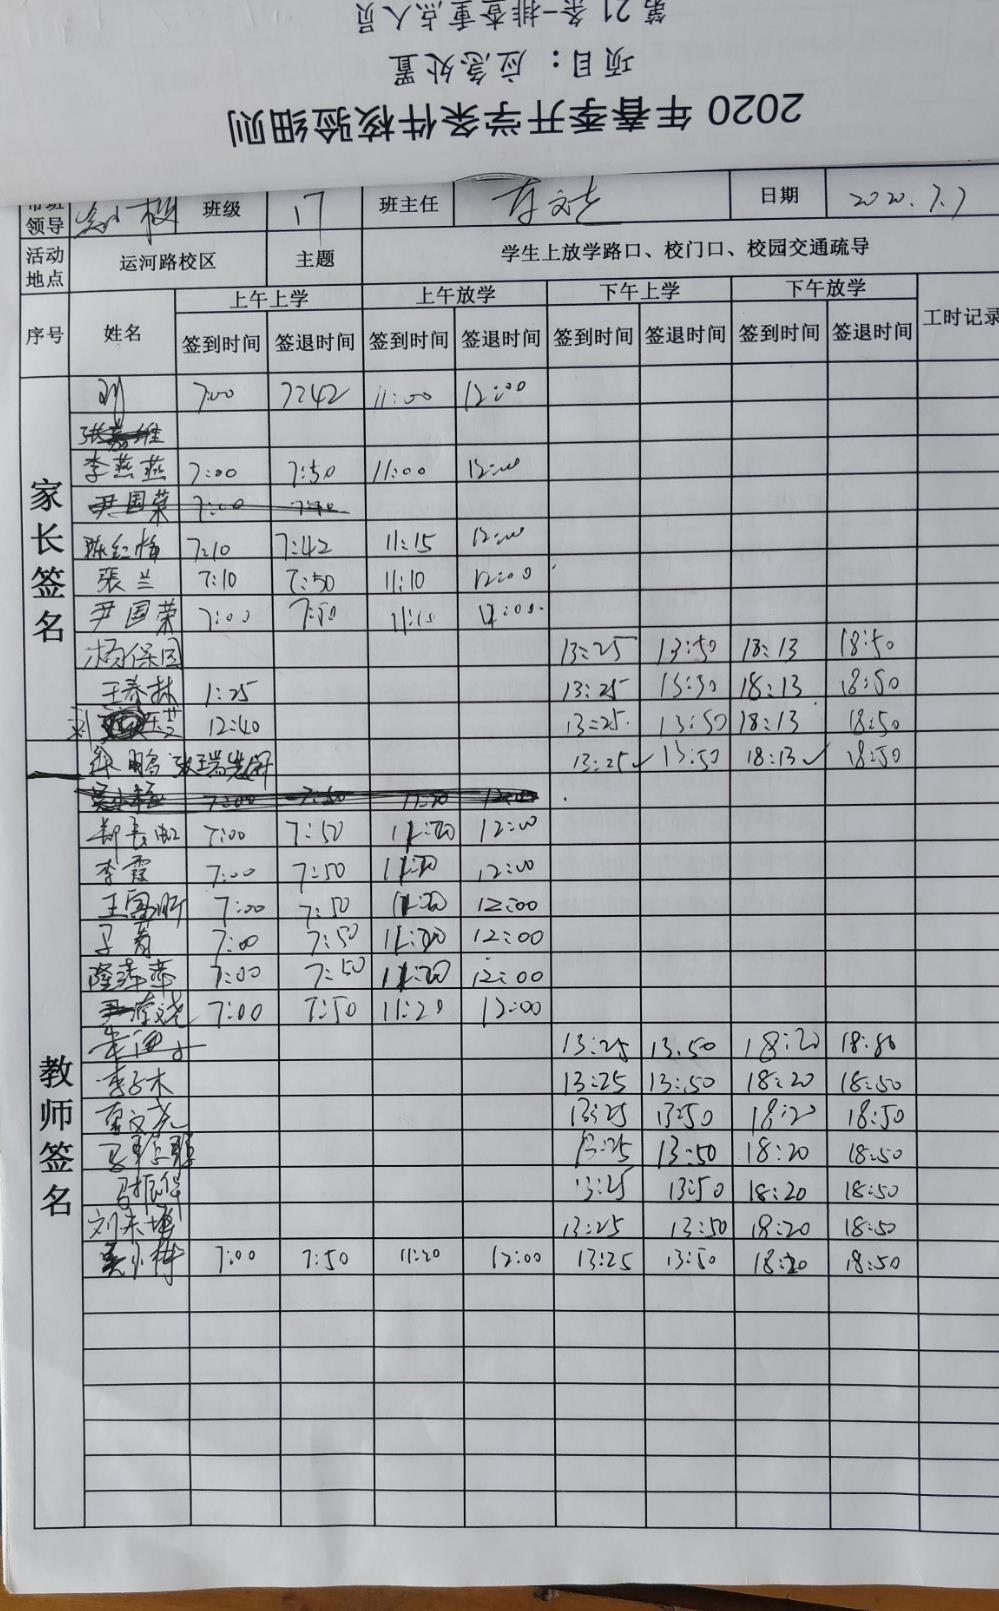 第 21 条-排查重点人员
项目：应急处置
2020 年春季开学条件核验细则
领导 班级 17 班主任 日期 2020.7.7
活动地点 运河路校区 主题 学生上放学路口、校门口、校园交通疏导
序号 姓名 上午上学 上午放学 下午上学 下午放学 工时记录
签到时间 签退时间 签到时间 签退时间 签到时间 签退时间 签到时间 签退时间
家长签名
刘 7:00 7:42 11:00 12:00
李燕燕 7:00 7:50 11:00 12:00
尹国荣 7:00 7:40
陈红梅 7:10 7:42 11:15 12:00
張兰 7:10 7:50 11:10 12:00
尹国荣 7:00 7:50 11:10 12:00
杨保国 13:25 13:50 18:13 18:50
王春林 1:25 13:25 13:50 18:13 18:50
12:40 13:25 13:50 18:13 18:50
13:25 13:50 18:13 18:50
教师签名
7:00 7:50 11:20 12:00
郑长虹 7:00 7:50 11:20 12:00
李霞 7:00 7:50 11:20 12:00
7:00 7:50 11:20 12:00
7:00 7:50 11:20 12:00
隆萍萍 7:00 7:50 11:20 12:00
7:00 7:50 11:20 12:00
13:25 13.50 18:20 18:50
李子木 13:25 13:50 18:20 18:50
13:25 13:50 18:20 18:50
13:25 13:50 18:20 18:50
马振华 13:25 13:50 18:20 18:50
13:25 13:50 18:20 18:50
7:00 7:50 11:20 12:00 13:25 13:50 18:20 18:50